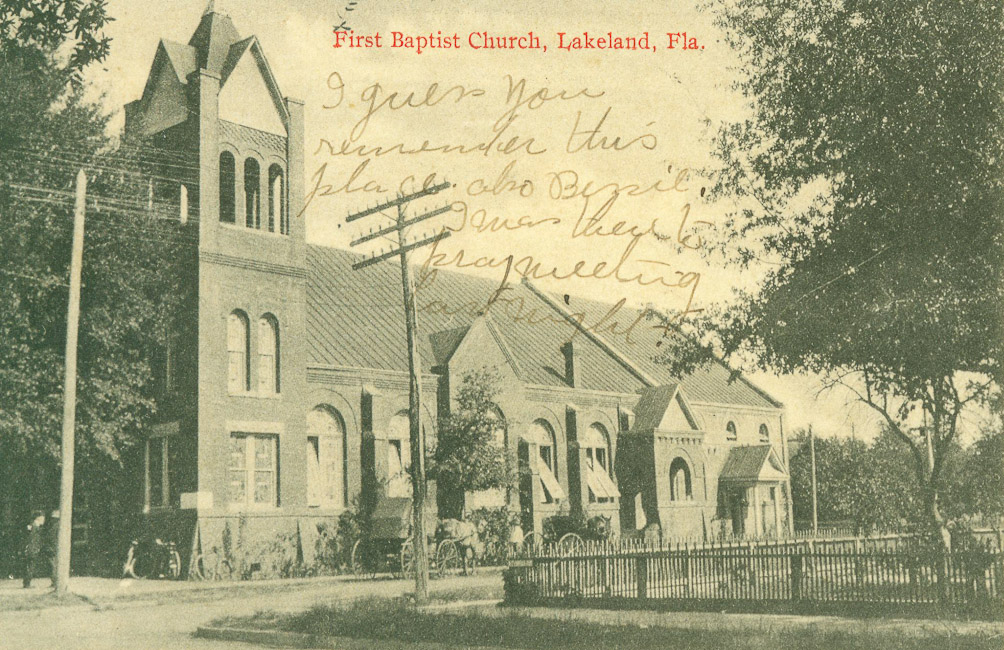 First Baptist Church, Lakeland, Fla.
I guess you
remember this
place also
I was there to
praymeeting
last night